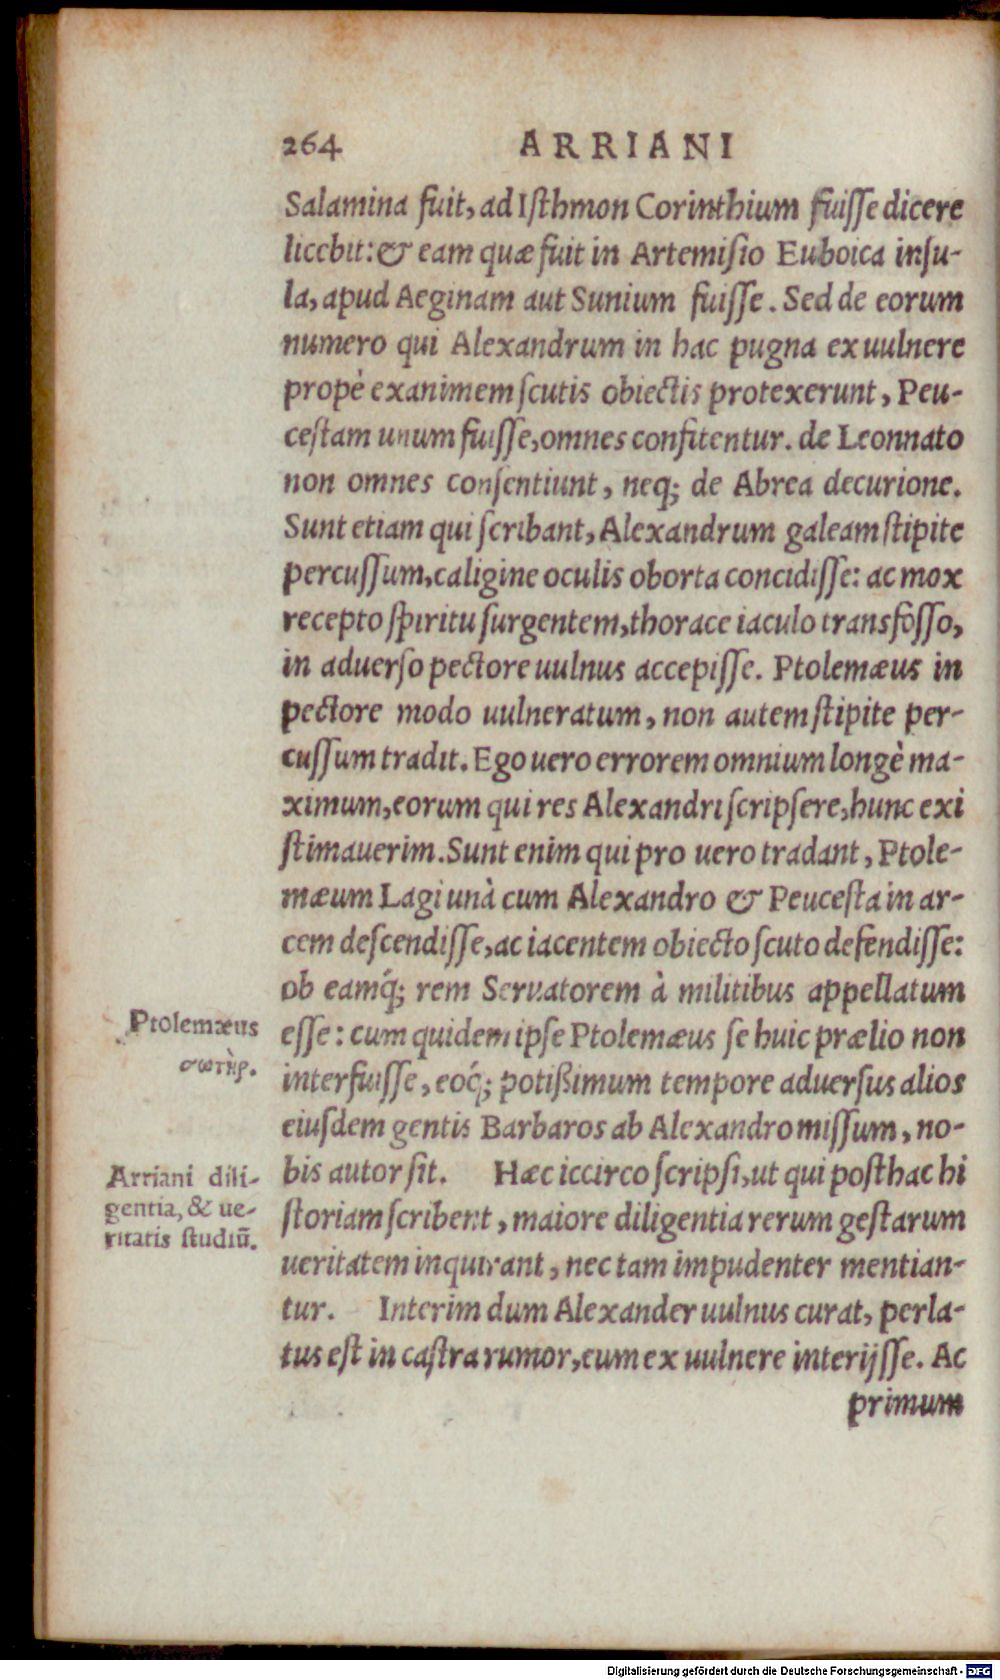 264 ARRIANI
Salamina fuit, ad Isthmon Corinthium fuisse dicere
licebit: & eam quæ fuit in Artemisio Euboica insu-
la, apud Aeginam aut Sunium fuisse. Sed de eorum
numero qui Alexandrum in hac pugna ex uulnere
propè exanimem scutis obiectis protexerunt, Peu-
cestam unum fuisse, omnes confitentur. de Leonnato
non omnes consentiunt, neq; de Abrea decurione.
Sunt etiam qui scribant, Alexandrum galeam stipite
percussum, caligine oculis oborta concidisse: ac mox
recepto spiritu surgentem, thorace iaculo transfosso,
in aduerso pectore uulnus accepisse. Ptolemæus in
pectore modo uulneratum, non autem stipite per-
cussum tradit. Ego uero errorem omnium longè ma-
ximum, eorum qui res Alexandri scripsere, hunc exi
stimauerim. Sunt enim qui pro uero tradant, Ptole-
mæum Lagi unà cum Alexandro & Peucesta in ar-
cem descendisse, ac iacentem obiecto scuto defendisse:
ob eamq́; rem Seruatorem à militibus appellatum
esse: cum quidem ipse Ptolemæus se huic prælio non
interfuisse, eoq́; potißimum tempore aduersus alios
eiusdem gentis Barbaros ab Alexandro missum, no-
bis autor sit. Hæc iccirco scripsi, ut qui posthac hi
storiam scribent, maiore diligentia rerum gestarum
ueritatem inquirant, nec tam impudenter mentian-
tur. Interim dum Alexander uulnus curat, perla-
tus est in castra rumor, eum ex uulnere interijsse. Ac
primum
Ptolemæus
σωτὴρ.
Arriani dili-
gentia, & ue-
ritatis studiũ.
Digitalisierung gefördert durch die Deutsche Forschungsgemeinschaft - DFG